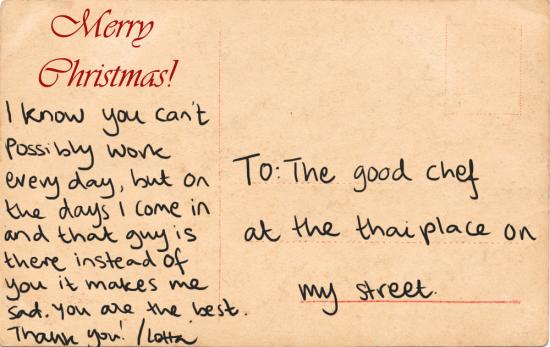 Merry
Christmas!
I know you can't
possibly work
every day, but on
the days I come in
and that guy is
there instead of
you it makes me
sad. You are the best.
Thank you! /Lotta
To: The good chef
at the thai place on
my street.